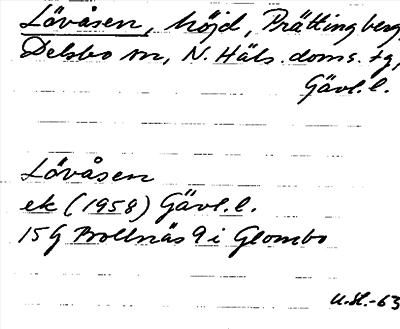 Lövåsen, höjd, Prästingberg,
Delsbo sn, N. Häls. doms. tg,
Gävl. l.
Lövåsen
ek (1958) Gävl. l.
15G Bollnäs 9 i Glombo
U.H.-63